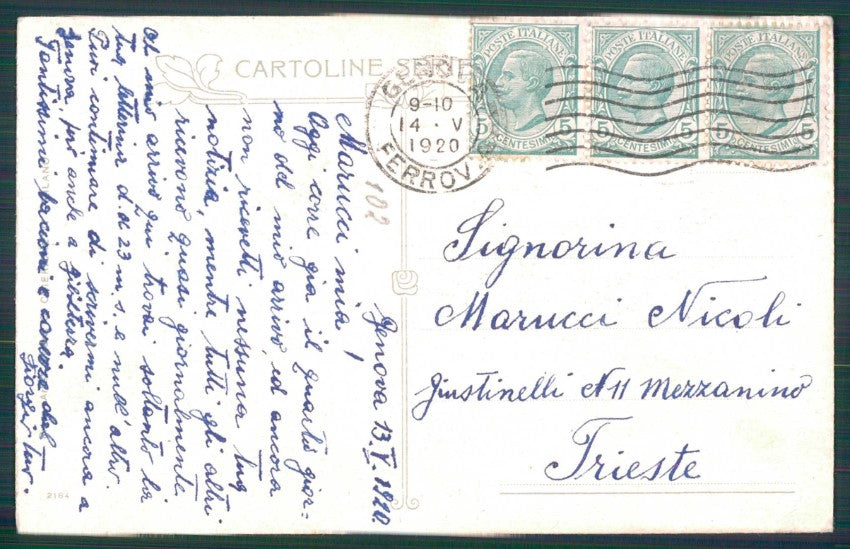 CARTOLINE
GENOVA
9-10
14 · V
1920
FERROVIA
POSTE ITALIANE
5 CENTESIMI 5
POSTE ITALIANE
5 CENTESIMI 5
POSTE ITALIANE
5 CENTESIMI 5
102
Genova 13.V.1920.
Marucci mia!
Oggi corre già il quarto gior-
no del mio arrivo, ed ancora
non ricevetti nessuna tua
notizia, mentre tutti gli altri
ricevono quasi giornalmente.
Al mio arrivo qui trovai soltanto la
tua letterina d.d. 23 m.s. e null'altro.
Puoi continuare di scrivermi ancora a
Genova, può anche a
Tantissimi bacioni e carezze dal
tuo.
Signorina
Marucci Nicoli
Giustinelli N 11 Mezzanino
Trieste
2164